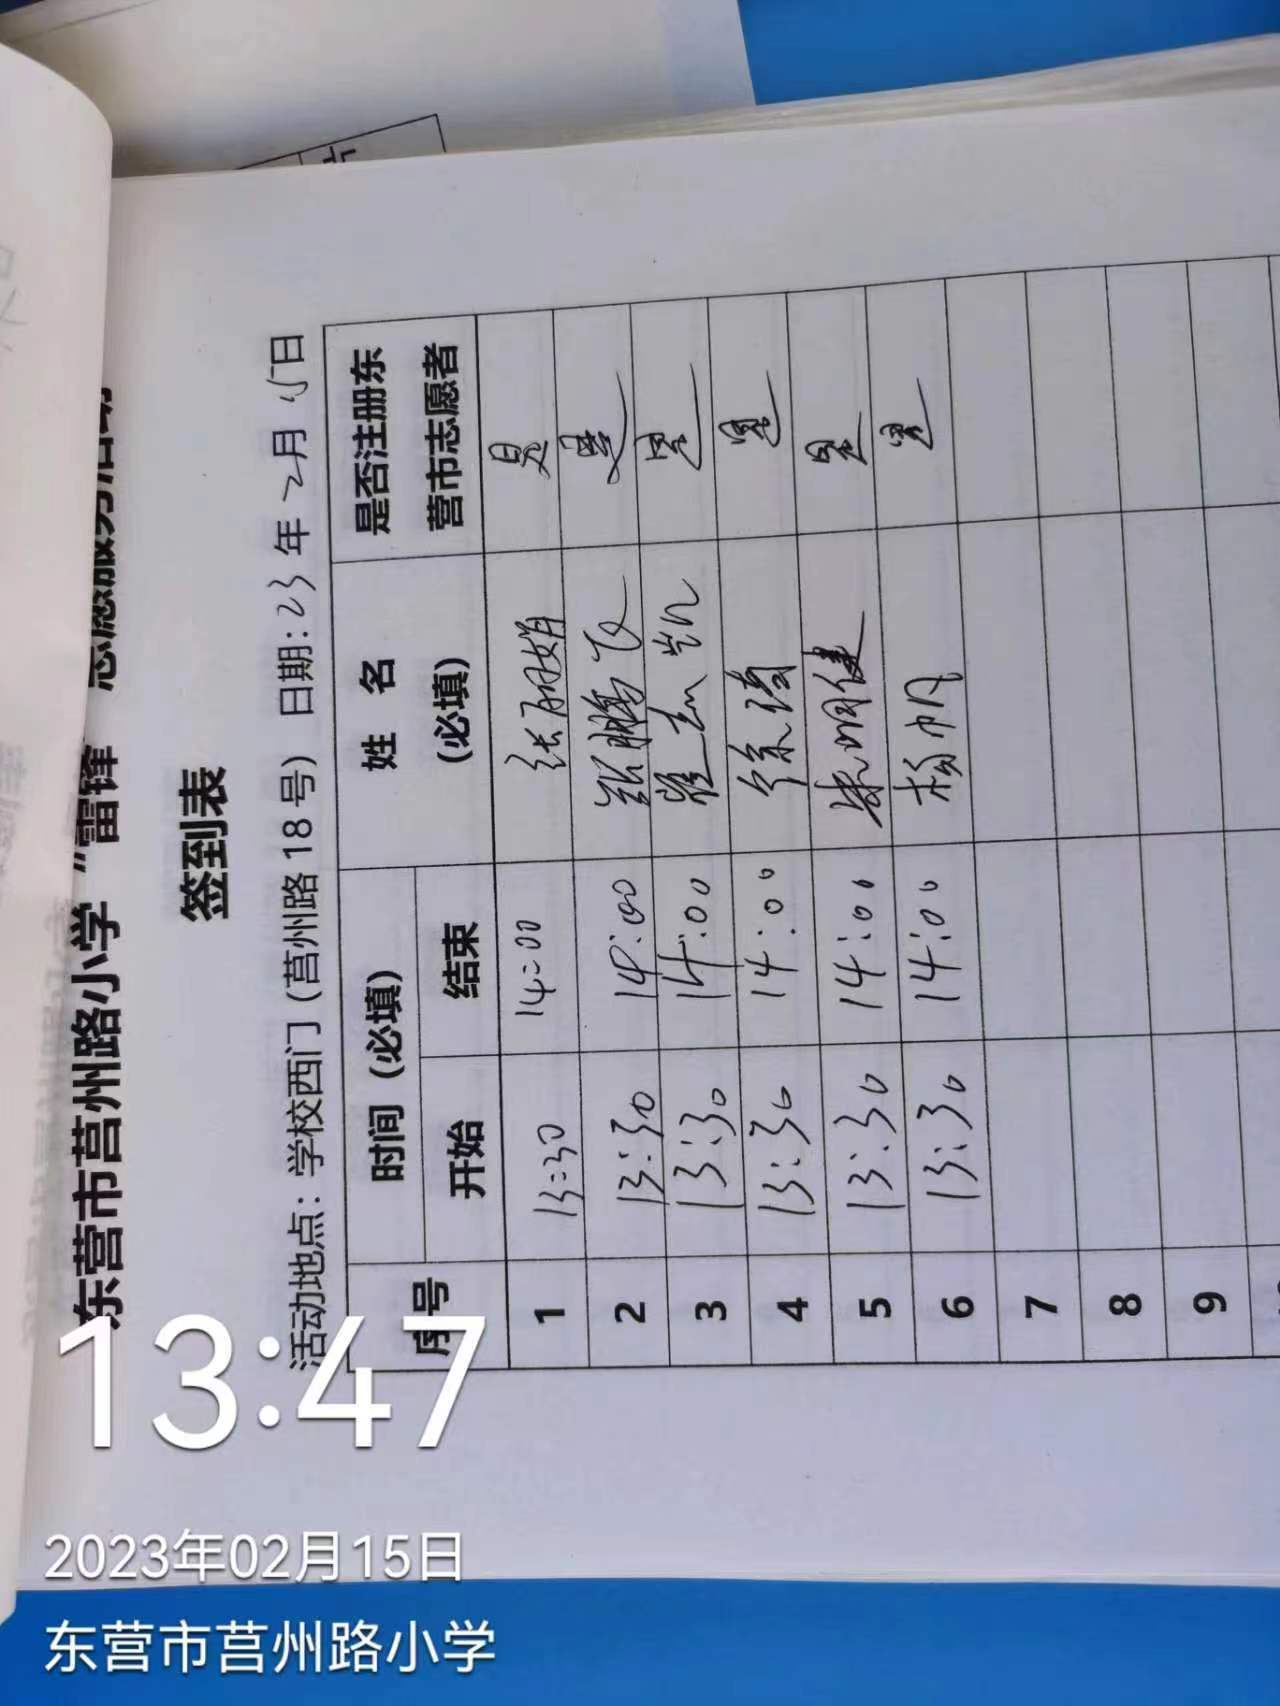 东营市莒州路小学“雷锋”志愿服务活动
签到表
活动地点：学校西门（莒州路18号） 日期：23年2月15日
序号 时间（必填） 姓 名（必填） 是否注册东营市志愿者
开始 结束
1 13:30 14:00 是
2 13:30 14:00 张鹏飞 是
3 13:30 14:00 崔志凯 是
4 13:30 14:00 徐倩 是
5 13:30 14:00 朱明健 是
6 13:30 14:00 杨帆 是
7
8
9
13:47
2023年02月15日
东营市莒州路小学